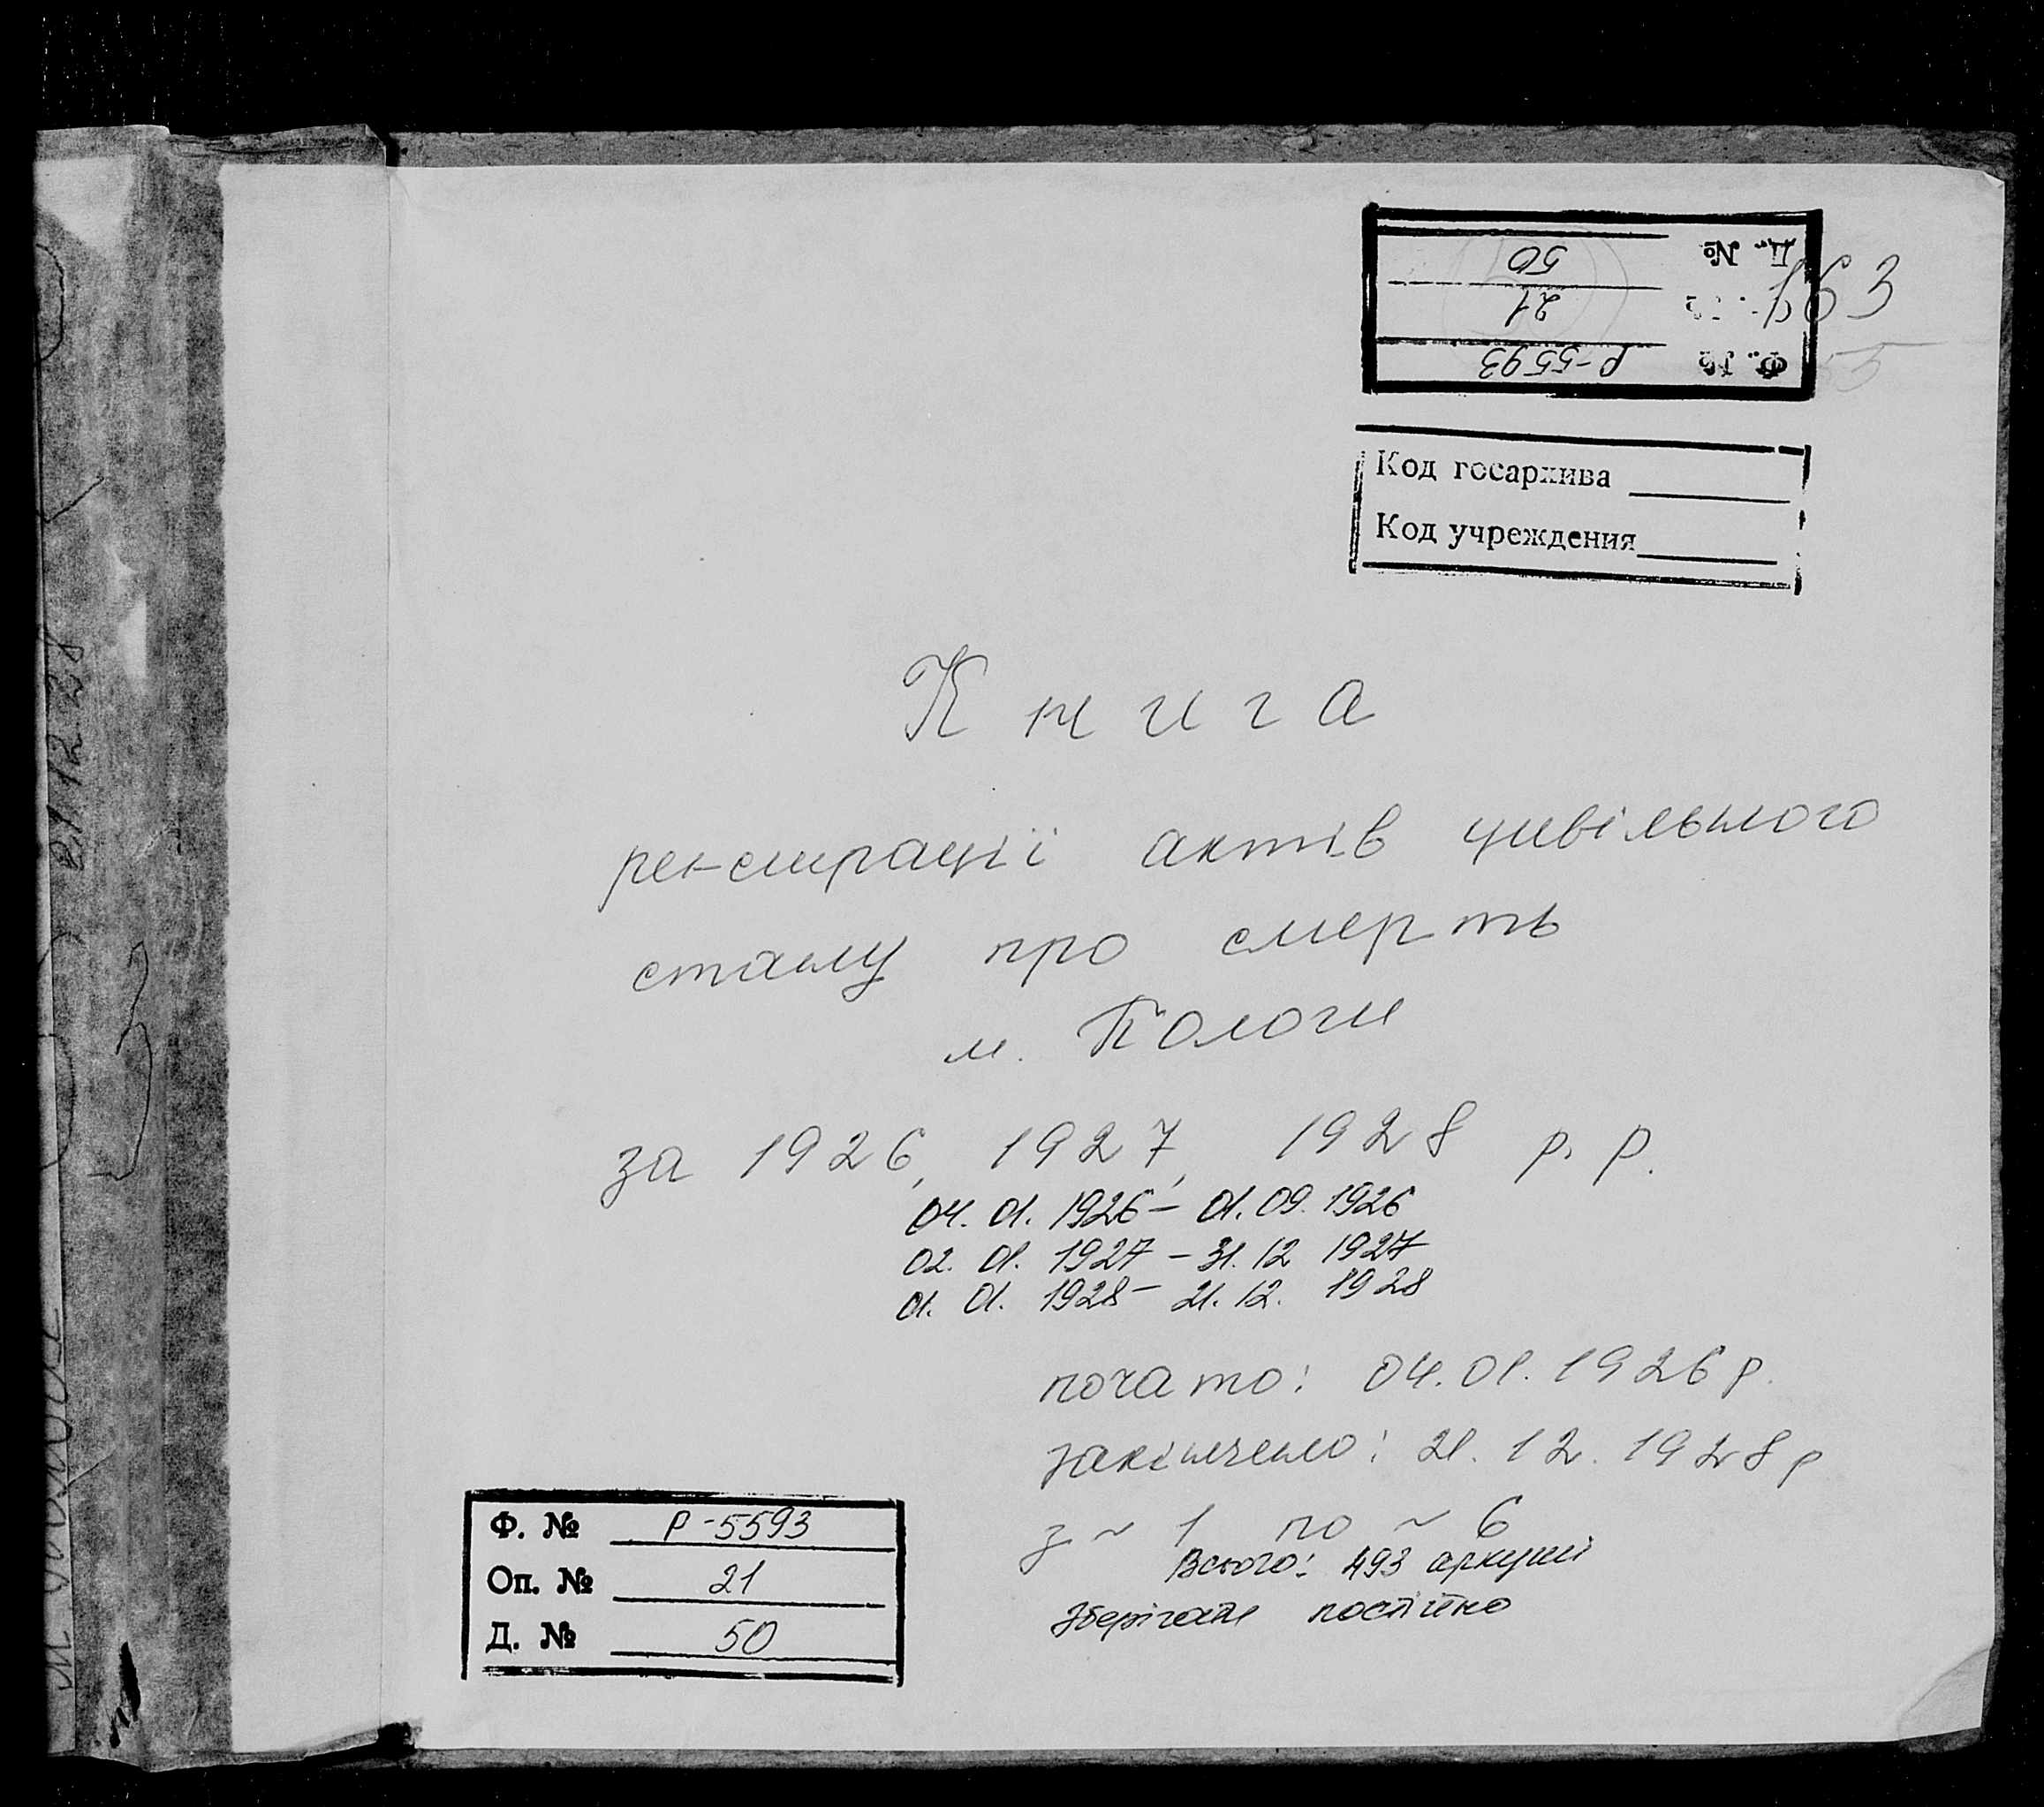 Д. № 50
21
Ф. № Р-5593
163
55
Код госархива
Код учреждения
Книга
реєстрації актів цивільного
стану про смерть
м. Пологи
за 1926, 1927, 1928 р. р.
04. 01. 1926 – 01. 09. 1926
02. 01. 1927 – 31. 12 1927
01. 01. 1928 – 21. 12. 1928
почато: 04.01.1926 р.
закінчено: 21. 12. 1928 р
з ~ 1 по ~ 6
Всього: 493 аркуші
Зберігати постійно
Ф. № Р-5593
Оп. № 21
Д. № 50